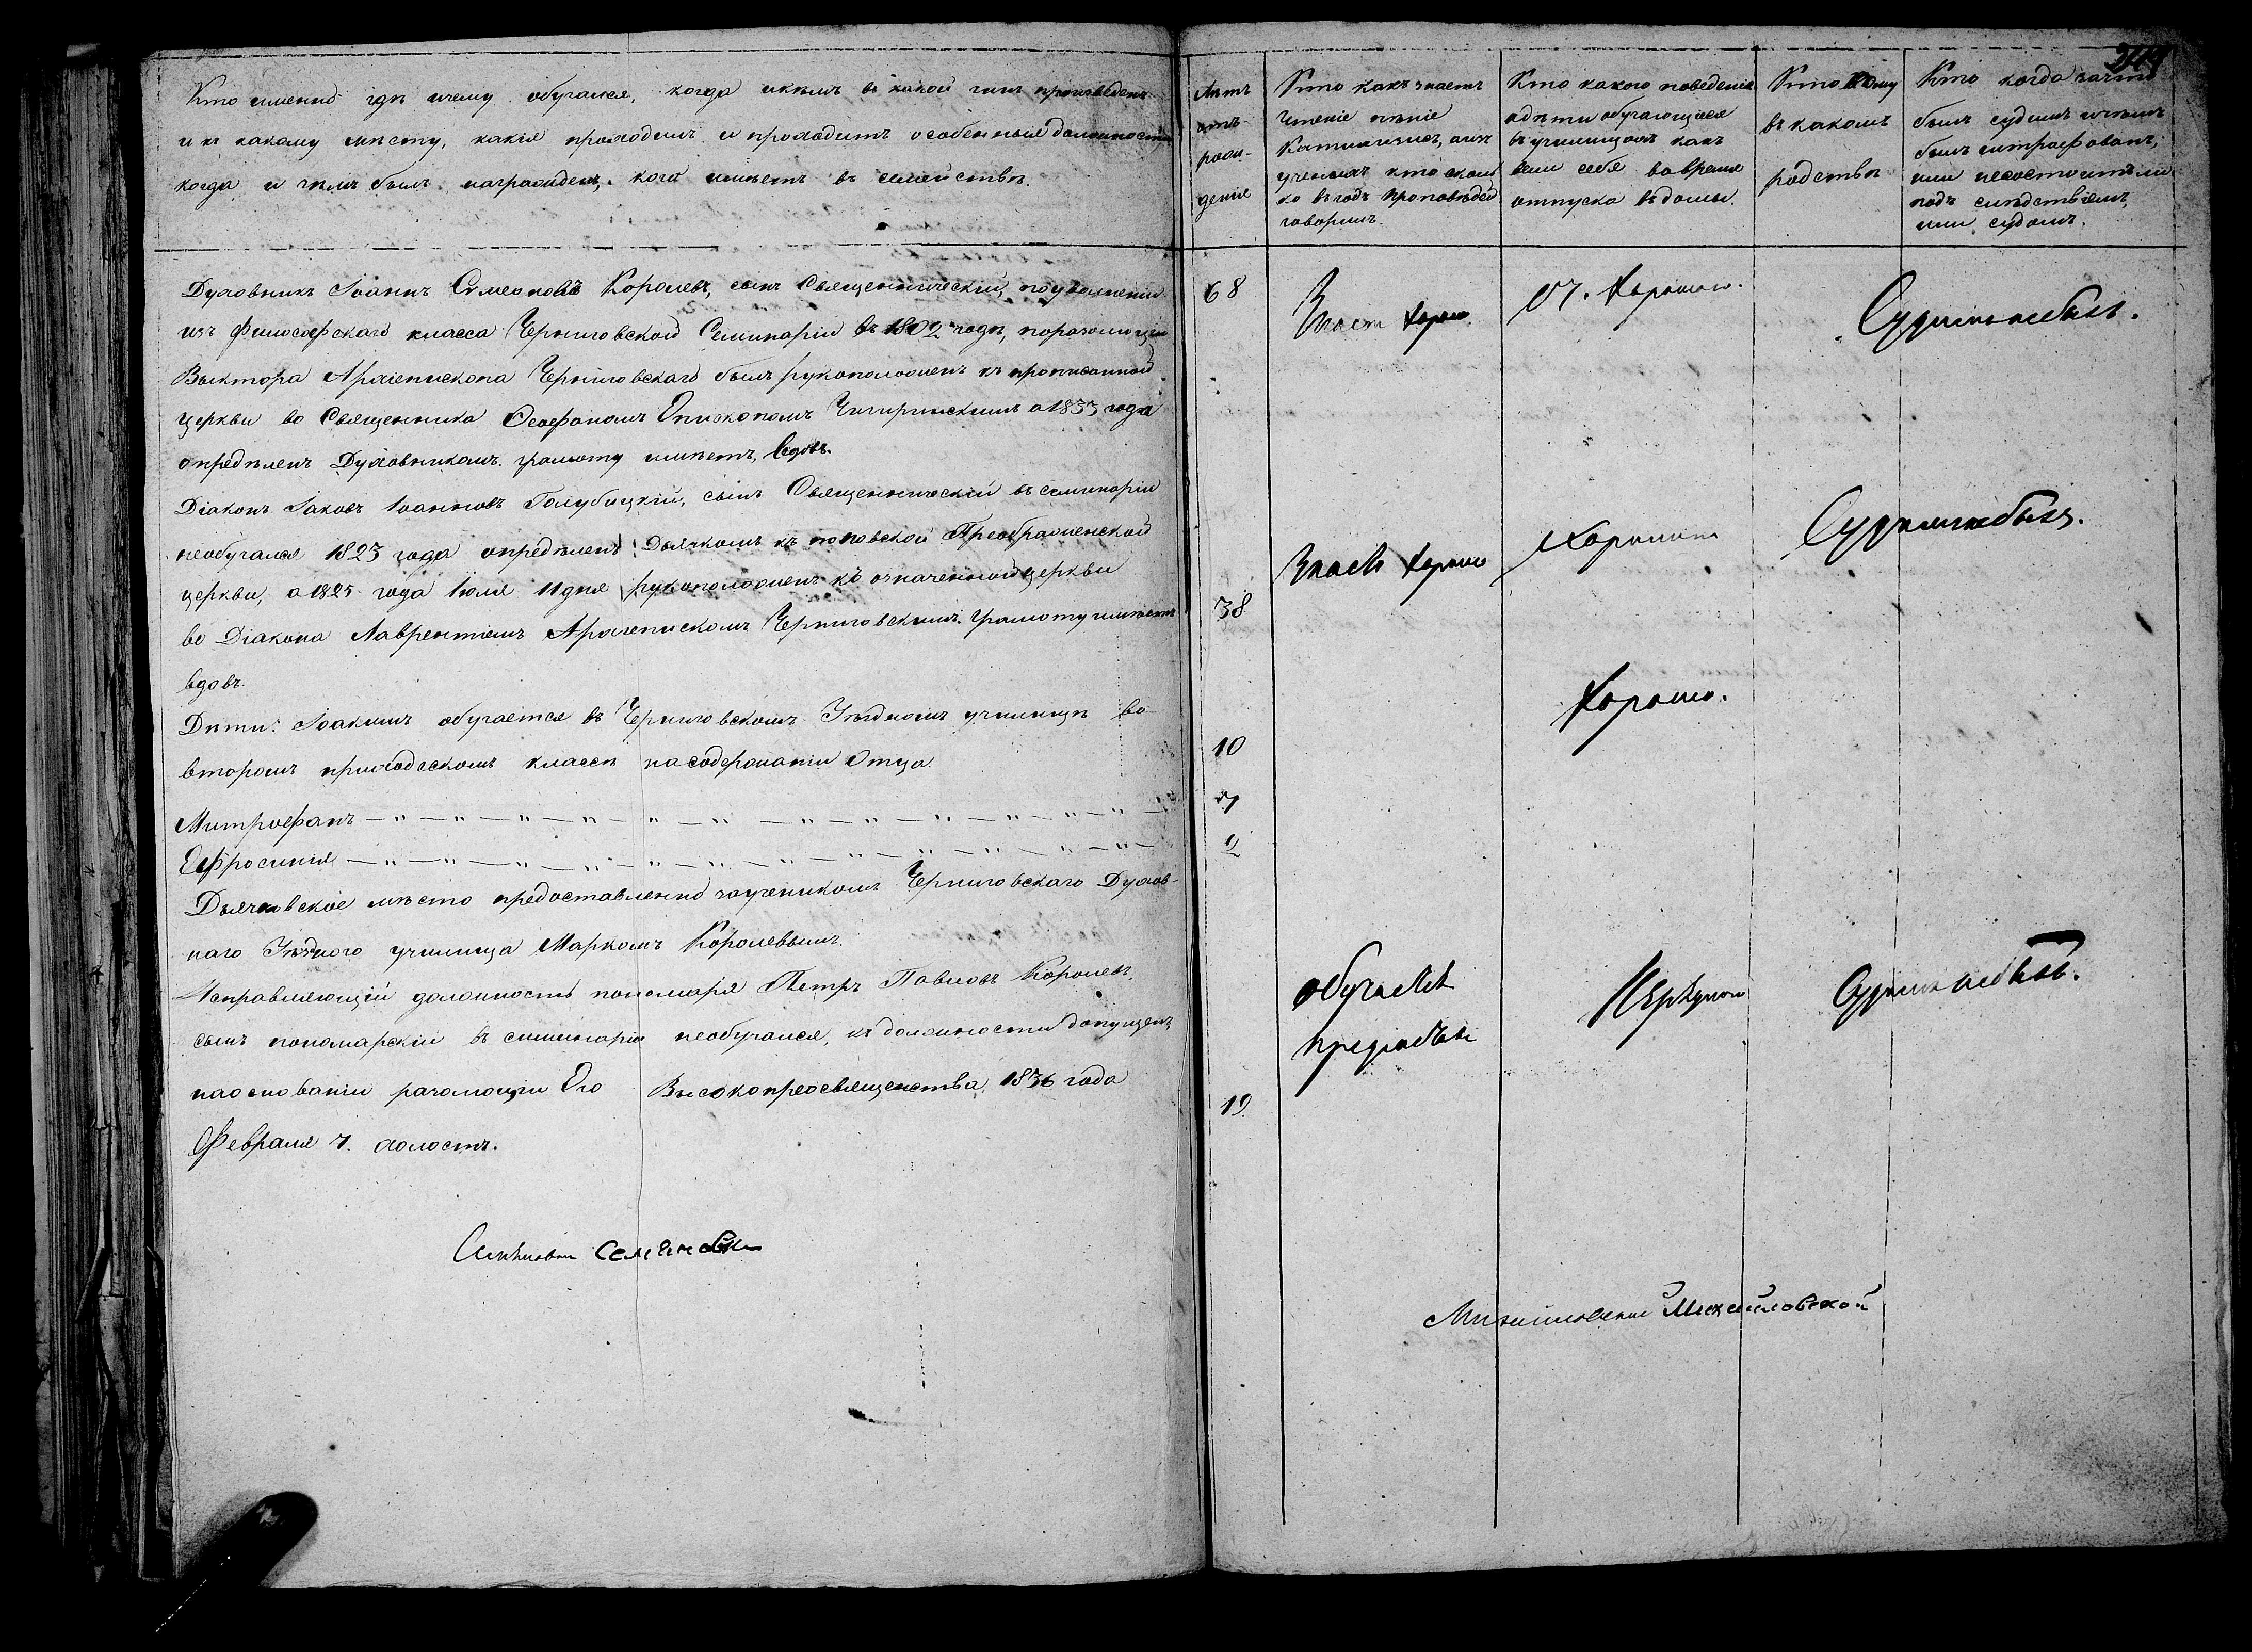 Кто именно гдѣ ичему обучался, когда икѣмъ въ какой чинъ произведенъ
и къ какому мѣсту, какія проходилъ и проходитъ особенныя должности
когда и чѣмъ былъ награжденъ, кого имѣетъ въ семействѣ.
Духовникъ Іоаннъ Симеоновъ Королевъ, сынъ Священническій, поуволненіи
изъ философскаго класса Черниговской Семинаріи въ 1802 годѣ, порезолюціи
Выктора Архіепископа Черниговскаго былъ рукоположенъ къ прописанной
церкви во Священника Ѳеофаномъ Епископомъ Чигиринскимъ а 1833 года
опредѣленъ Духовникомъ. грамоту имѣетъ, вдовъ.
Діаконъ Іаковъ Іоанновъ Голубицкій, сынъ Священническій въ семинаріи
необучался 1823 года опредѣленъ Дьячкомъ къ поповской Преображенской
церкви, а 1825 года Іюля 11 дня рукоположенъ къ означенной церкви
во Діакона Лаврентіемъ Архіепископомъ Черниговскимъ. Грамоту имѣетъ
вдовъ.
Дѣти: Іоакимъ обучается въ Черниговскомъ Уѣздномъ училищѣ во-
второмъ приходсскомъ классѣ насодержаніи Отца
Митрофанъ — " — " — " — " — " — " — " — " — " — " —
Ефросинія — " — " — " — " — " — " — " — " — " — " —
Дьячковское мѣсто предоставленно заученикомъ Черниговскаго Духов-
наго Уѣзднаго училища Маркомъ Королевымъ.
Исправляющій должность пономаря Петръ Павловъ Королевъ,
сынъ пономарскій въ симинаріи необучался, къ должности допущенъ
наоснованіи резолюціи Его Высокопреосвященства 1836 года
Февраля 7. холостъ.
Лѣтъ
отъ
рож-
денія
Кто какъ знаетъ
чтеніе пѣніе
Катихизисъ, аизъ
ученыхъ кто сколь
ко въгодъ проповѣдей
говорилъ.
Кто какого поведенія
адѣти обучающіеся
въ училищахъ какъ
вели себя вовремя
отпуска въдомы.
Кто кому
въ какомъ
родствѣ
Кто когда зачто
былъ судимъ ичѣмъ
былъ штрафованъ,
или несостоитъли
подъ слѣдствіемъ
или судомъ.
68
Знаетъ хорошо
Оч. хорошаго.
Судимъ небылъ.
38
Знаетъ хорошо
Хорошаго
Судимъ небылъ.
10
Хорошаго.
7
2
19
обучаетъ
Судимъ небылъ.
Михайловской